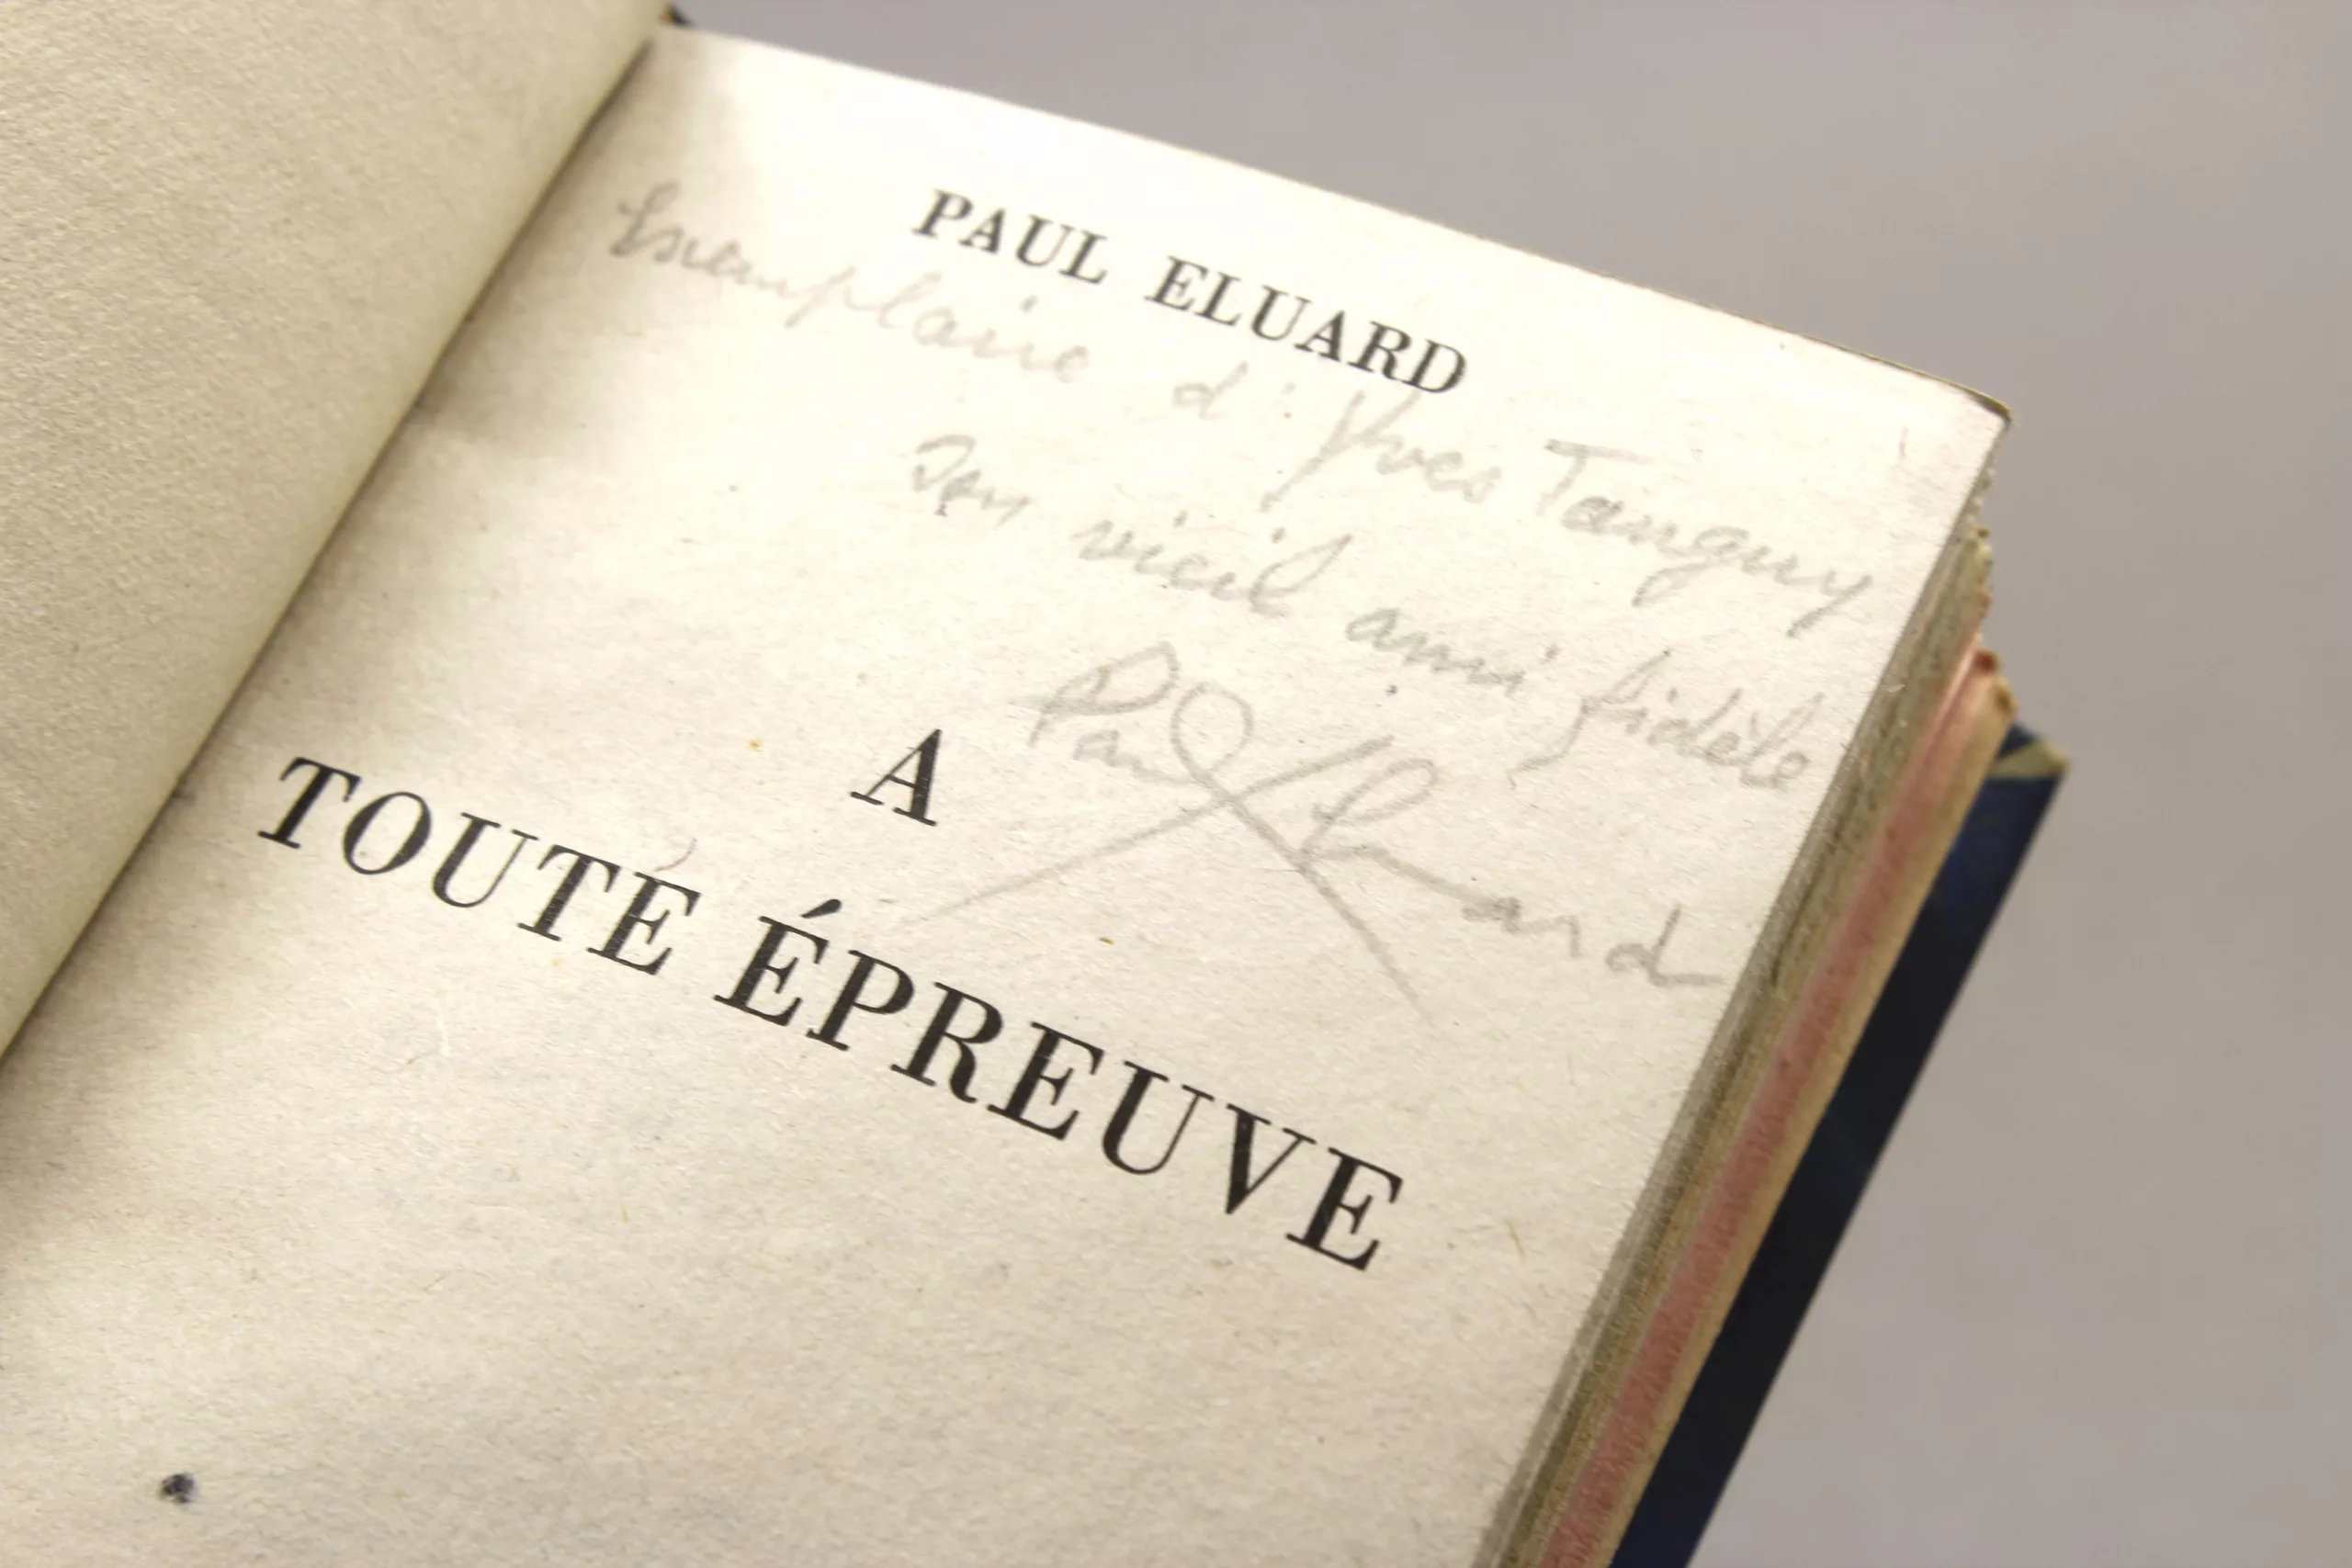 PAUL ELUARD
Exemplaire d'Yves Tanguy
Son vieil ami fidèle
Paul Eluard
A
TOUTE ÉPREUVE